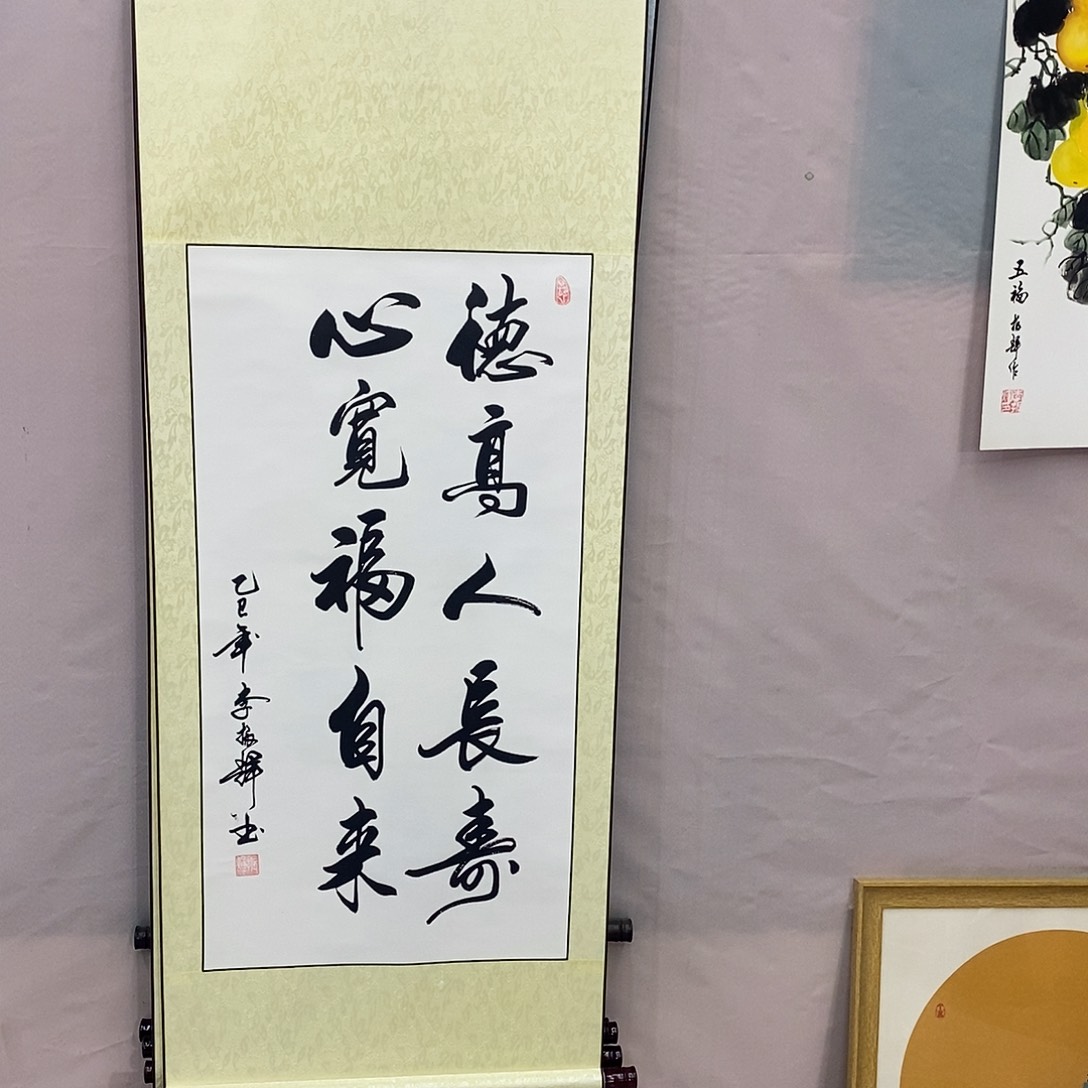 德高人長壽
心寬福自来
乙巳年 李振輝 書
五福 振輝作